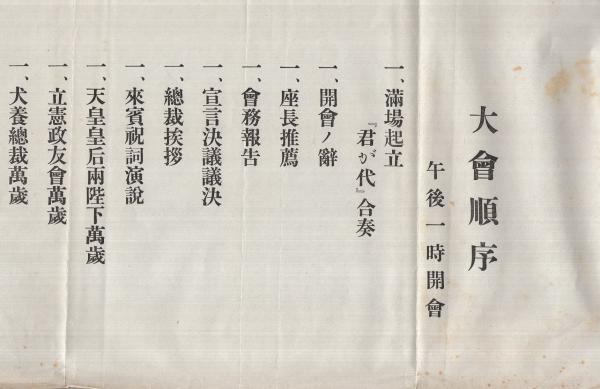 大會順序
午後一時開會
一、滿場起立
『君が代』合奏
一、開會ノ辭
一、座長推薦
一、會務報告
一、宣言決議議決
一、總裁挨拶
一、來賓祝詞演說
一、天皇皇后兩陛下萬歲
一、立憲政友會萬歲
一、犬養總裁萬歲